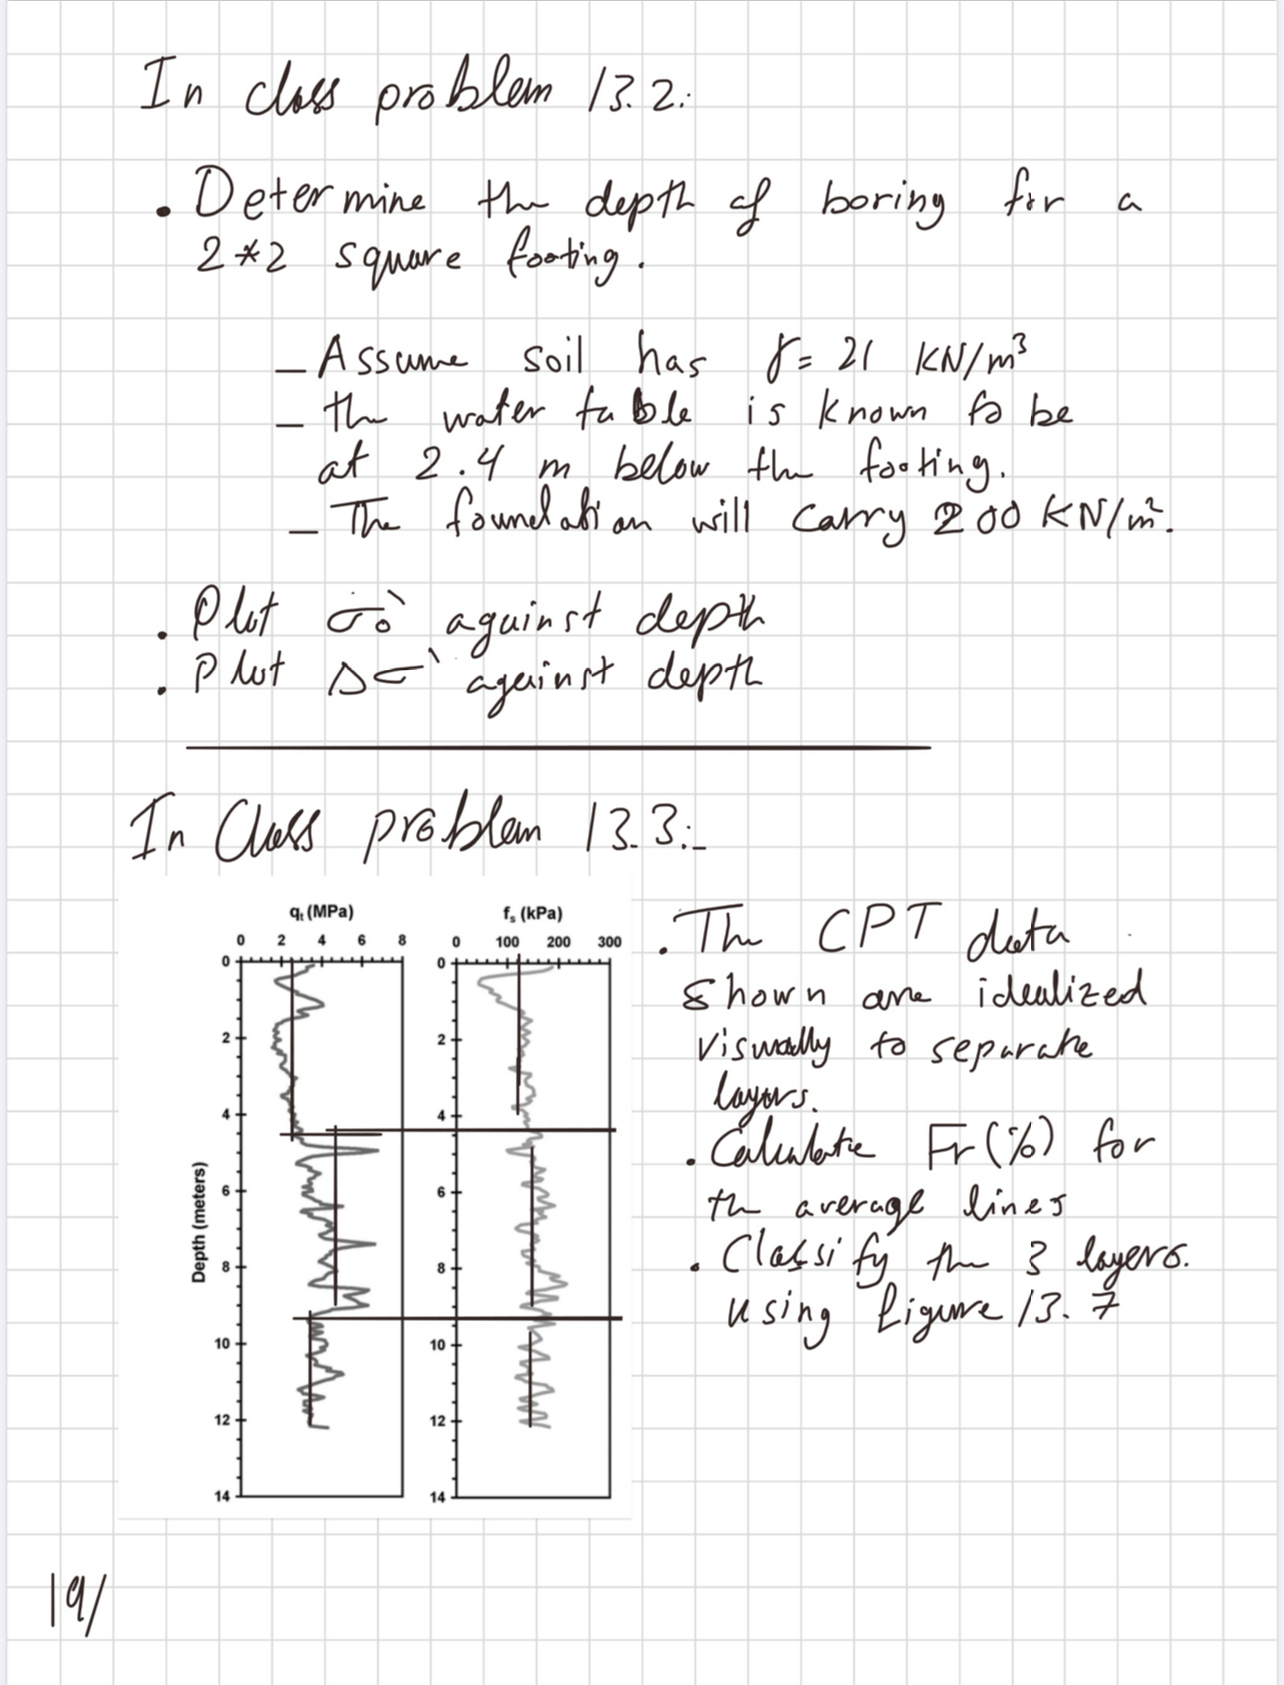 In class problem 13.2:
. Determine the depth of boring for a
2*2 square footing.
- Assume soil has γ= 21 KN/m³
- the water table is known to be
at 2.4 m below the footing.
- The foundation will carry 200 KN/m².
. Plot σo' against depth
. Plot Δσ' against depth
In Class problem 13.3:-
qt (MPa)
0 2 4 6 8
0
2
4
6
8
10
12
14
Depth (meters)
fs (kPa)
0 100 200 300
0
2
4
6
8
10
12
14
. The CPT data
shown are idealized
visually to separate
layers.
. Calculate Fr(%) for
the average lines
. Classify the 3 layers.
using figure 13.7
19/